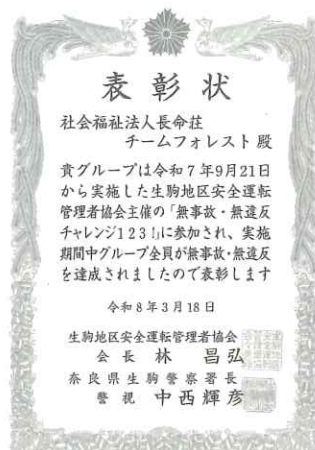 表彰状
社会福祉法人長命荘
チームフォレスト殿
貴グループは令和7年9月21日
から実施した生駒地区安全運転
管理者協会主催の「無事故・無違反
チャレンジ123」に参加され、実施
期間中グループ全員が無事故・無違反
を達成されましたので表彰します
令和8年3月18日
生駒地区安全運転管理者協会
会長 林 昌弘
奈良県生駒警察署長
警視 中西輝彦